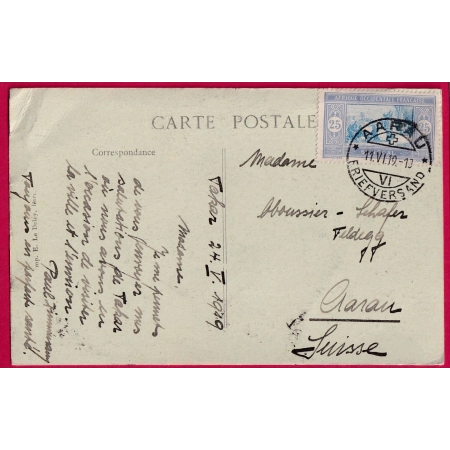 CARTE POSTALE
Correspondance
Dakar 24 V. 1919
Madame
Je me permets
de vous envoyer nos
salutations de Dakar
où nous avons eu
l'occasion de visiter
la ville et l'environ.
Toujours en parfaite santé.
Paul
Imp. E. Le Deley, Paris
AFRIQUE OCCIDENTALE FRANÇAISE
25 25
AARAU
11.VI.19.-13
VI
BRIEFVERSAND
Madame
Oboussier-Schäfer
Feldegg
Aarau
Suisse